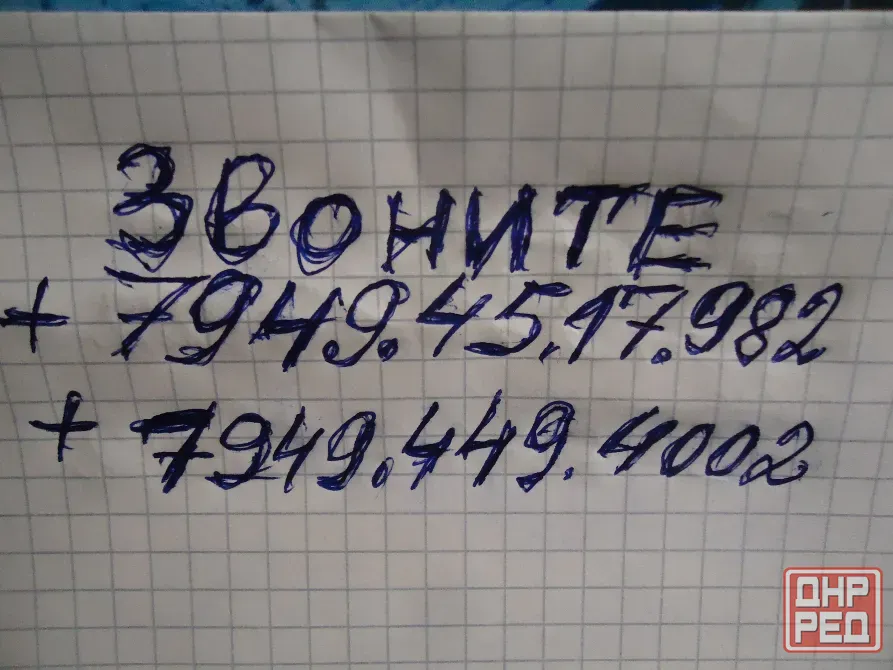 Звоните
+7949.45.17.982
+7949.449.4002
ДНР
РЕД